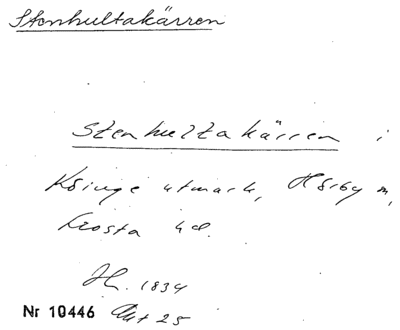 Stenhultakärren
Stenhultakärren i
Ksinge utmark, Hörby sn,
Frosta hd.
Jh. 1834
Nr 10446 Akt 25